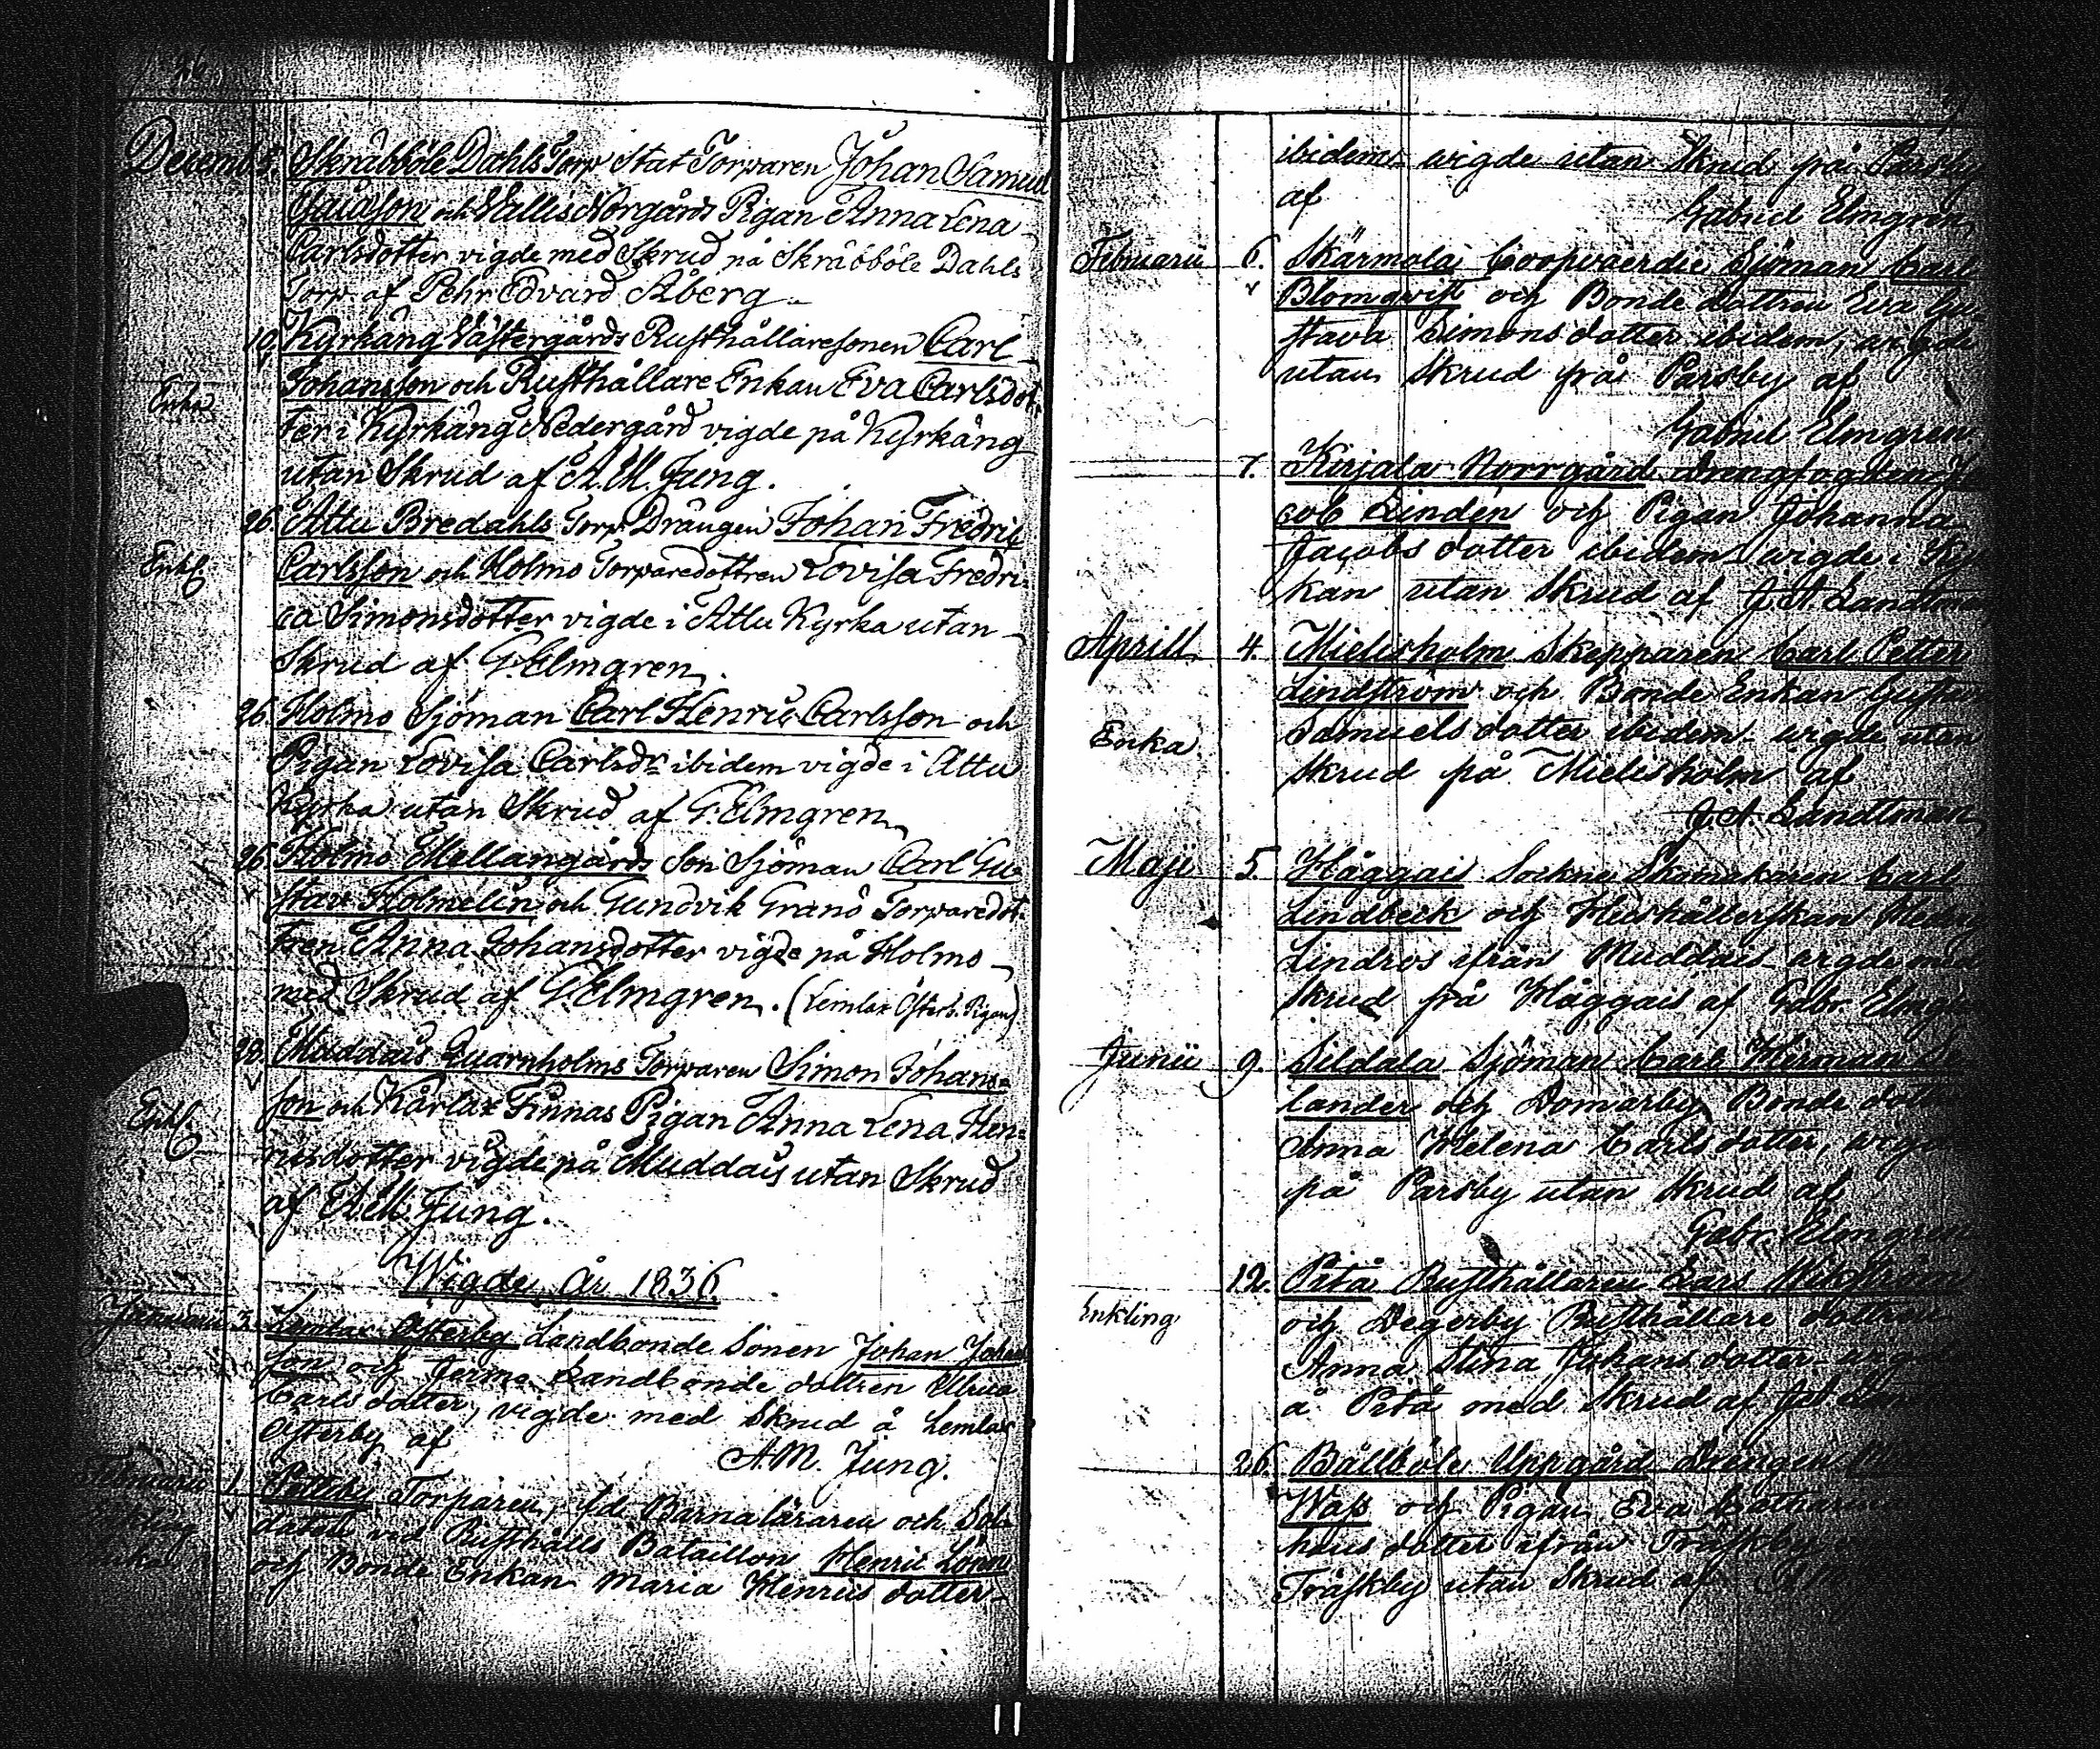 26
Decemb. 8. Skräbböle Dahls Torp Stat Torparen Johan Samuel
och Vallis Norgårds Pigan Anna Lena
Carlsdotter vigde med Skrud på Skräbböle Dahls
Torp af Pehr Edvard Åberg
10. Kyrkäng Västergårds Rusthållaresonen Carl
Enka Johansson och Rusthållare Enkan Eva Carlsdot-
ter i Kyrkäng Nedergård vigde på Kyrkäng
utan Skrud af A.M. Jung.
26. Attu Bredahls Torp Drängen Johan Fredric
Enkl. Carlsson och Holmo Torparedottren Lovisa Fredri-
ca Simonsdotter vigde i Attu Kyrka utan
Skrud af G. Elmgren.
26. Holmo Sjöman Carl Henric Carlsson och
Pigan Lovisa Carlsdr ibidem vigde i Attu
Kyrka utan Skrud af G. Elmgren
26. Holmo Mellangårds Son Sjöman Carl Gu-
stav Holmelin och Gundvik Granö Torparedot-
tren Anna Johansdotter vigde på Holmo
med Skrud af G. Elmgren. (Lemlax Österb. Pigan)
28. Muddais Quarnholms Torparen Simon Johans-
Enkl. son och Kårlax Finnas Pigan Anna Lena Hen-
ricsdotter vigde på Muddais utan Skrud
af A.M. Jung.
Wigde År 1836.
Januarii 3. Lemlax Österby Landbonde Sonen Johan Johans
son och Jermo Landbonde dottren Ulrica
Carlsdotter, vigde med Skrud å Lemlax
Österby af
A.M. Jung.
Februarii 1. Petteby Torparen, f.d. Barnaläraren och Sol-
Enkling daten vid Rusthålls Bataillon Henric Lönn
Enka och Bonde Enkan Maria Henrics dotter
ibidem wigde utan Skrud på Parsby
af
Gabriel Elmgren
Februarii 6. Skärmola Coopvaerdie Sjöman Carl
Blomqvist och Bonde dottren Eva Gu-
stava Simons dotter ibidem, wigde
utan Skrud på Parsby af
Gabriel Elmgren
7. Kirjala Norrgård Drengfogden Ja
cob Lindén och Pigan Johanna
Jacobs dotter ibidem wigde i Kyr
kan utan Skrud af J.A. Sandtman
Aprill 4. Mielisholm Skepparen Carl Petter
Lindström och Bonde Enkan Gustav
Enka Samuels dotter ibidem wigde utan
skrud på Mielisholm af
J.A. Sandtman
Maji 5. Håggais Sockne Skomakaren Carl
Lindbeck och Hushållerskan Hedvig
Lindros ifrån Muddais wigde
skrud på Håggais af Gabr. Elmgren
Junii 9. Sildala Sjöman Carl Herman Se
lander och Domarby Bonde dotter
Anna Helena Carls dotter, wigde
på Parsby utan skrud af
Gabr. Elmgren
12. Pitå Rusthållaren Lars Wikström
Enkling och Degerby Rusthållare dottren
Anna Stina Johans dotter wigde
å Pitå med Skrud af J.A.
26. Bällböle Uppgård Drengen
Wass och Pigan Eva Catharina
hans dotter ifrån Träskby
Träskby utan Skrud af